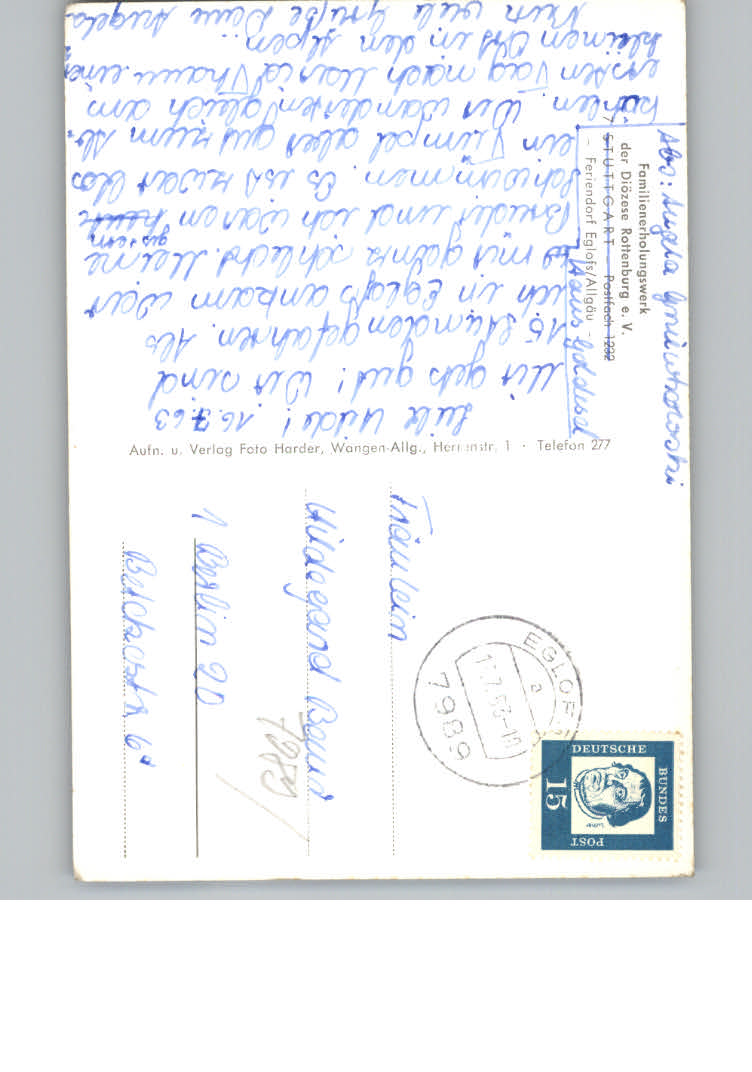 Liebe Hilde! 16.7.63
Mir gehts gut! Wir sind
15 Stunden gefahren. Als
ich in Eglofs ankam war
es mir ganz schlecht. Meine
gestern
Bruder und ich waren heute
schwimmen. Es ist zwar blos
ein Tümpel aber gut zum
kühlen. Wir wanderten gleich am
ersten Tag nach Maria Thann einen
kleinen Ort in den Alpen
Nun viele Grüße Deine Angela
Abs: Angela
Haus
Familienerholungswerk
der Diözese Rottenburg e. V.
7 STUTTGART Postfach 1232
- Feriendorf Eglofs/Allgäu -
Aufn. u. Verlag Foto Harder, Wangen-Allg., Herrenstr. 1 · Telefon 277
Fräulein
Hildegard
1 Berlin 20
6a
EGLOFS
a
7989
DEUTSCHE
BUNDES
POST
15